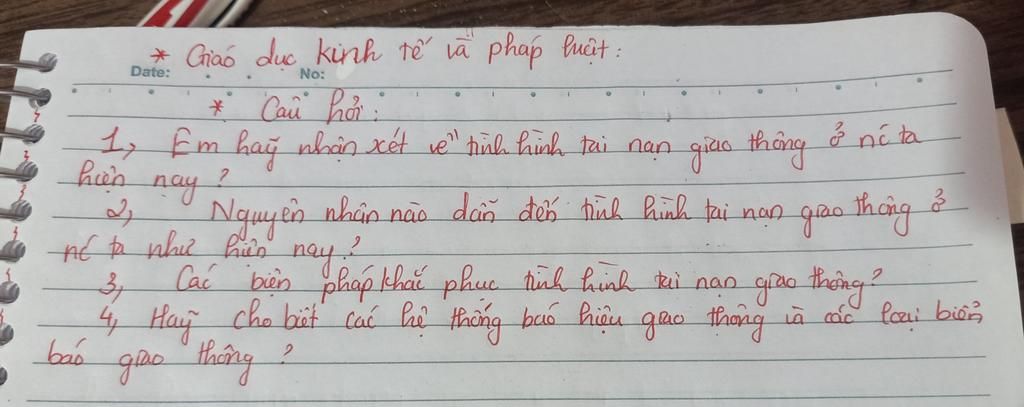 * Giáo dục kinh tế và pháp luật:
Date: No:
* Câu hỏi:
1, Em hãy nhận xét về tình hình tai nạn giao thông ở nc ta
hiện nay?
2, Nguyên nhân nào dẫn đến tình hình tai nạn giao thông ở
nc ta như hiện nay?
3, Các biện pháp khắc phục tình hình tai nạn giao thông?
4, Hãy cho biết các hệ thống báo hiệu giao thông và các loại biển
báo giao thông?